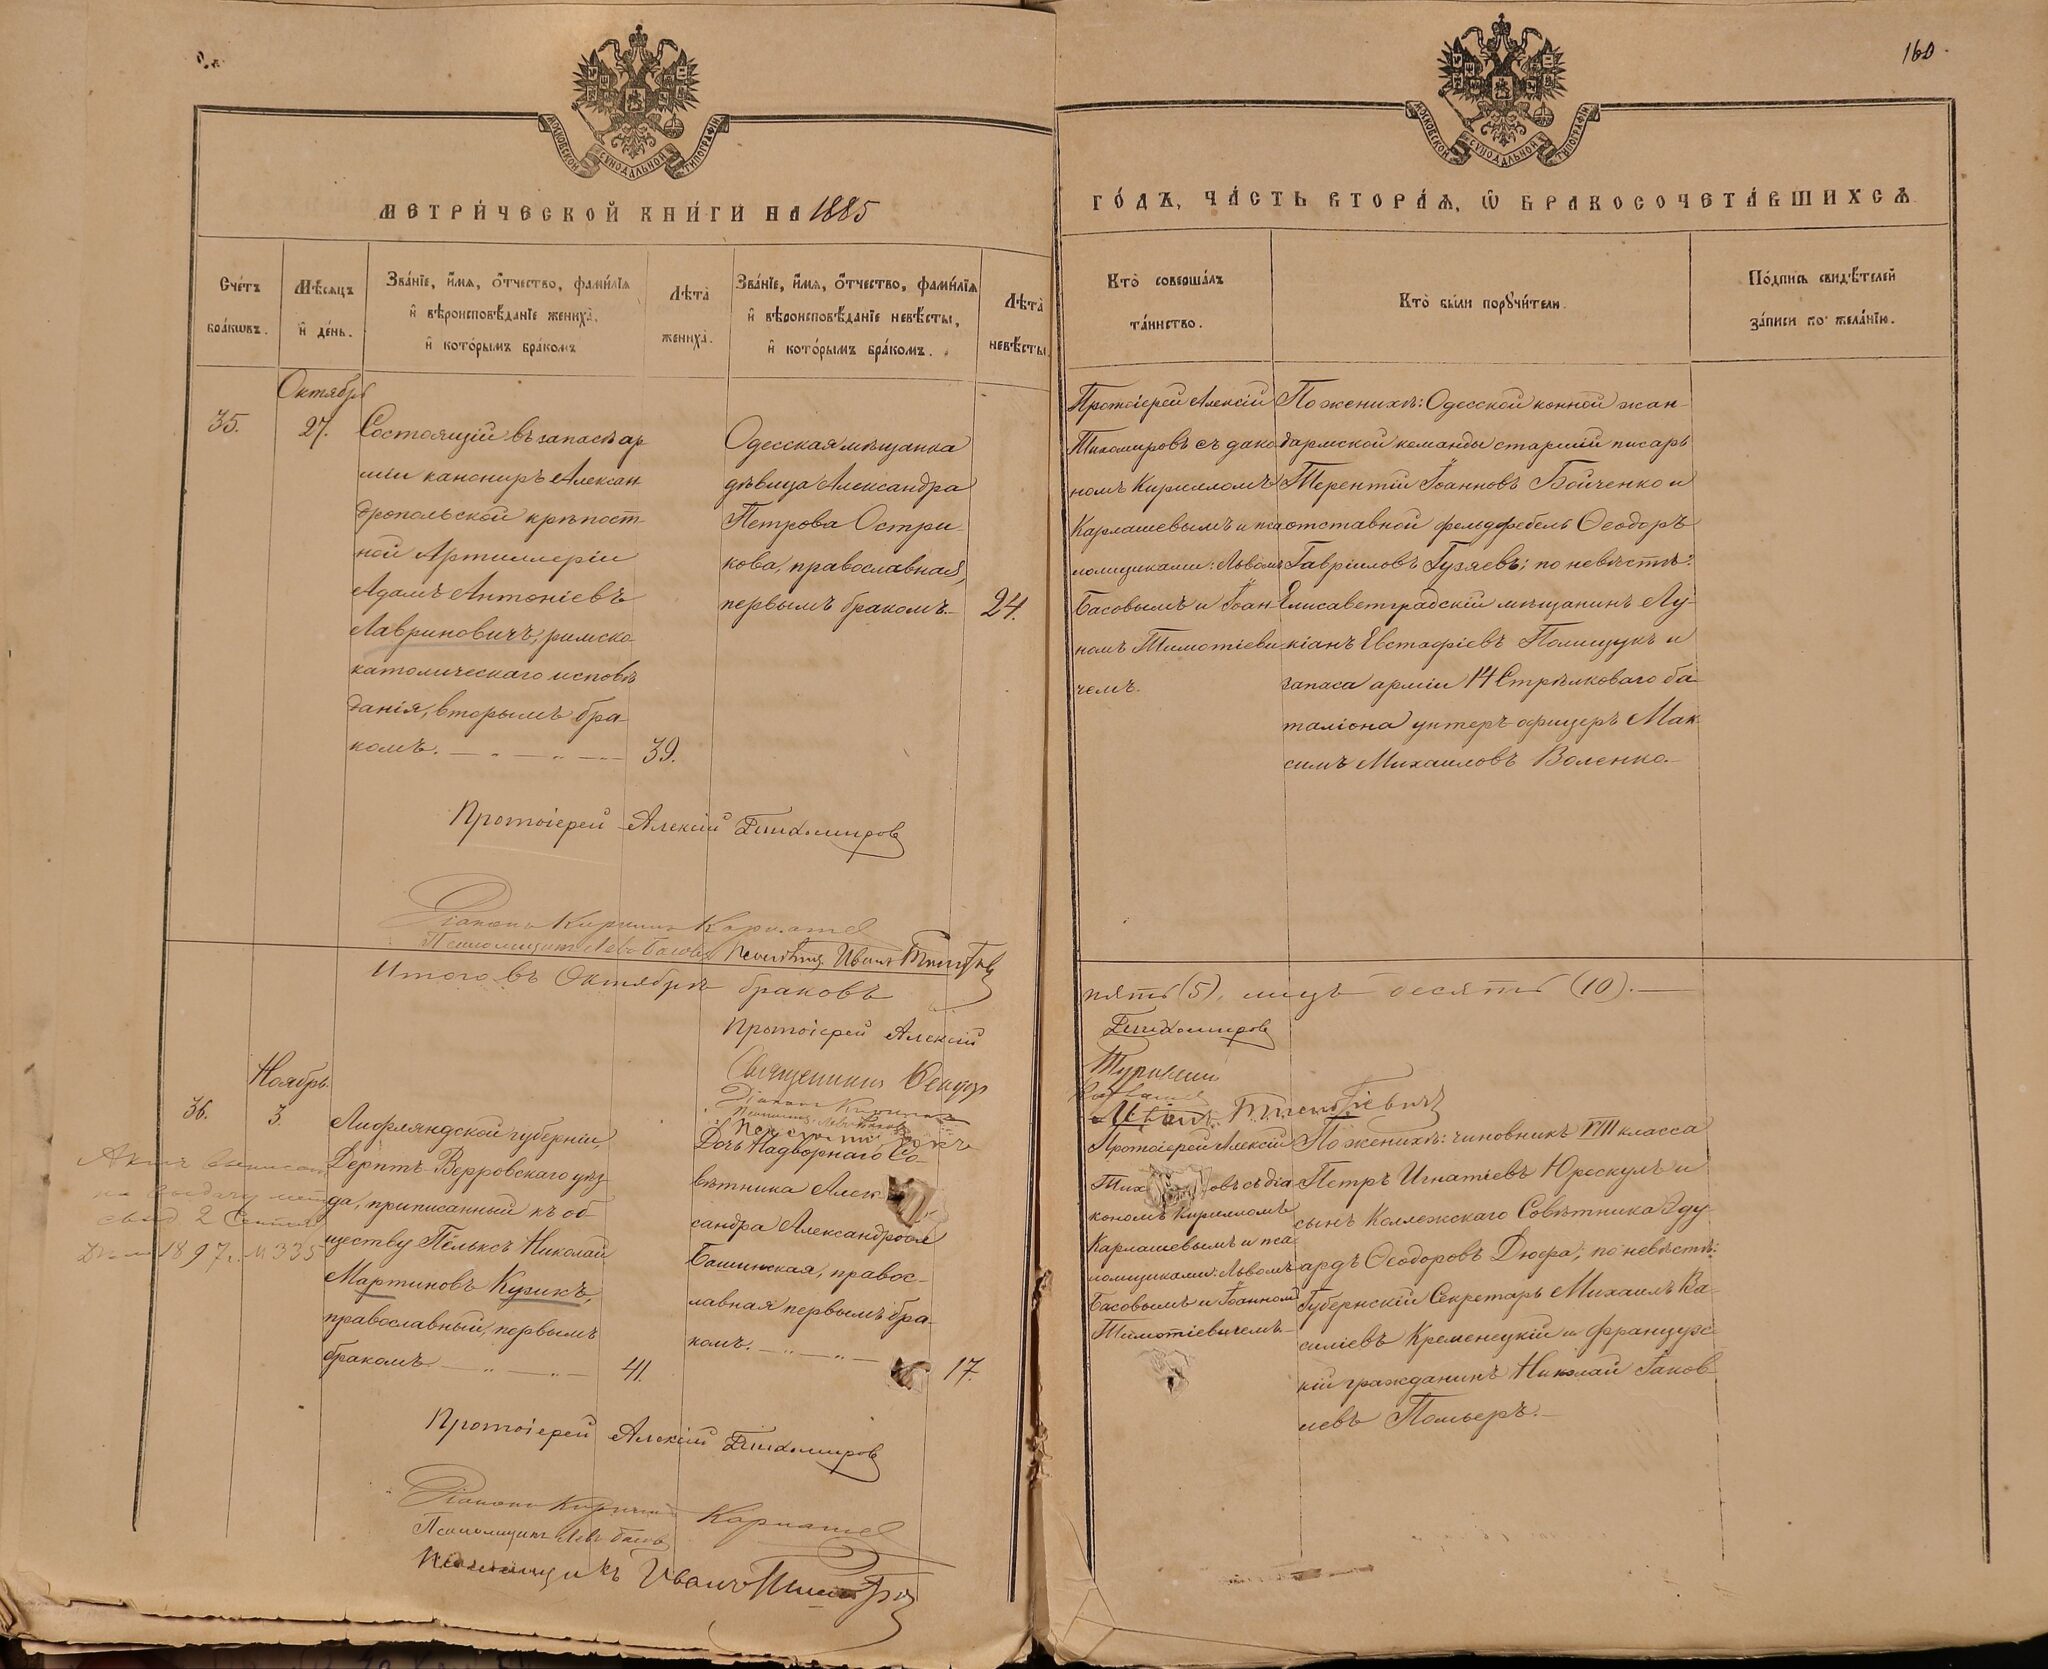 160.
МОСКОВСКОЙ СѴНОДАЛЬНОЙ ТИПОГРАФІИ
МОСКОВСКОЙ СѴНОДАЛЬНОЙ ТИПОГРАФІИ
МЕТРИ́ЧЕСКОЙ КНИ́ГИ НА 1885
ГО́ДЪ, ЧА́СТЬ ВТОРА́Ѧ, Ѡ҆ БРАКОСОЧЕТА́ВШИХСѦ
Сче́тъ
бра́кѡвъ.
Мѣ́сѧцъ
и҆ де́нь.
Зва́нїе, и҆́мѧ, ѻ҆́тчество, фами́лїѧ
и҆ вѣроисповѣ́данїе жениха̀,
и҆ кото́рымъ бра́комъ
Лѣта̀
жениха̀.
Зва́нїе, и҆́мѧ, ѻ҆́тчество, фами́лїѧ
и҆ вѣроисповѣ́данїе невѣ́сты,
и҆ кото́рымъ бра́комъ.
Лѣта̀
невѣ́сты
Кто̀ соверша́лъ
та́инство.
Кто̀ бы́ли порꙋчи́тели.
По́дпись свидѣ́телей
за́писи по жела́нїю.
Октябрь
35.
27.
Состоящій въ запасѣ ар
міи канониръ Алексан
дропольской крѣпост-
ной Артиллеріи
Адамъ Антоніевъ
Лавриновичъ, римско
католическаго исповѣ
данія, вторымъ бра
комъ.
39.
Одесская мѣщанка
дѣвица Александра
Петрова Остри-
кова, православная,
первымъ бракомъ.
24.
Протоіерей Алексій
Тихомировъ съ дако
номъ Кирилломъ
Карлашевымъ и пса
ломщиками: Львомъ
Басовымъ и Іоан-
номъ Тимотіеви
чемъ.
По женихѣ: Одесской конной жан-
дармской команды старшій писарь
Терентій Іоанновъ Бойченко и
отставной фельдфебель Ѳеодоръ
Гавріиловъ Гузяевъ; по невѣстѣ:
Елисаветградскій мѣщанинъ Лу-
кіанъ Евстафіевъ Полищукъ и
запаса арміи 14 Стрѣлковаго ба
таліона унтеръ-офицеръ Мак
симъ Михаиловъ Воленко.
Протоіерей Алексій Тихомировъ
Діаконъ Кириллъ Карлашев
Псаломщикъ Левъ Басовъ
Иванъ
Итого въ Октябрѣ браковъ
пять (5), лицъ десять (10).
Протоіерей Алексій
Тихомировъ
Священникъ Ѳеодор
Діаконъ Кириллъ
Иванъ Тимотіевичъ
Ноябрь.
36.
3.
Лифляндской губерніи,
Дерптъ-Верровскаго уѣз
да, приписанный къ об
ществу Пёлькс Николай
Мартиновъ Кузикъ,
православный, первымъ
бракомъ.
41.
2
1897 г. № 335
Дочь Надворнаго Со-
вѣтника Алек
сандра Александровна
Башинская, правос-
лавная первымъ бра
комъ.
17.
Протоіерей Алексій
Тих овъ съ діа
кономъ Кирилломъ
Карлашевымъ и пса
ломщиками: Львомъ
Басовымъ и Іоанномъ
Тимотіевичемъ.
По женихѣ: чиновникъ VIII класса
Петръ Игнатіевъ Юрескулъ и
сынъ Коллежскаго Совѣтника Эду
ардъ Ѳеодоровъ Дюфа; по невѣстѣ:
Губернскій Секретарь Михаилъ Ва-
силіевъ Кременецкій и французс
кій гражданинъ Николай Іаков
левъ Польеръ.
Протоіерей Алексій Тихомировъ
Діаконъ Кириллъ Карлашев
Псаломщикъ Левъ Басовъ
Псаломщикъ Иванъ